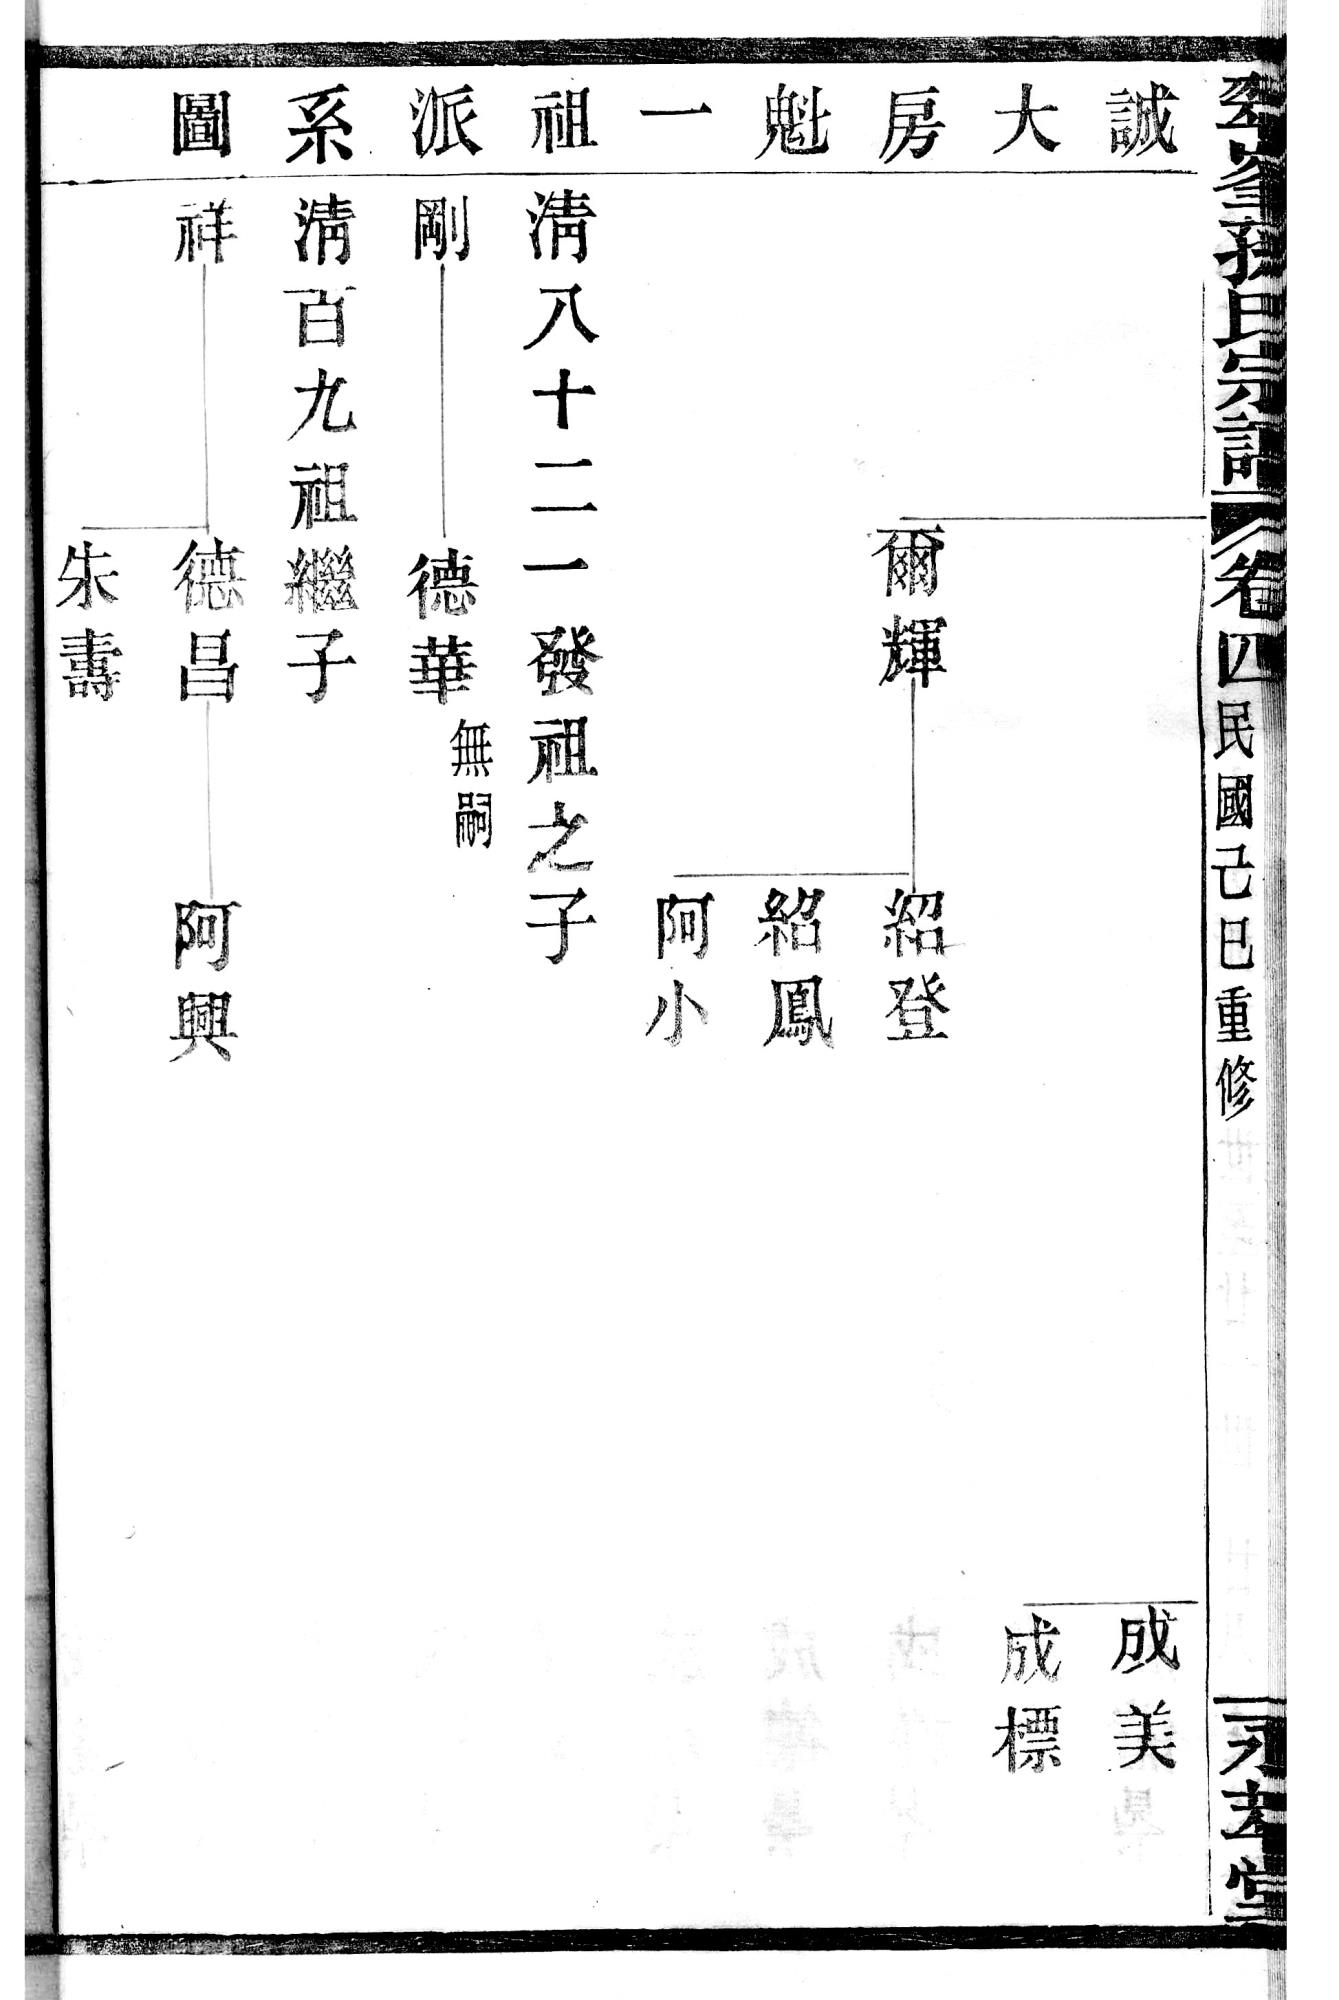 孫氏宗譜
卷四
民國己巳重修
堂
誠大房魁一祖派系圖
成美
成標
爾輝
紹登
紹鳳
阿小
清八十二一發祖之子
剛
德華
無嗣
清百九祖繼子
祥
德昌
阿興
朱壽